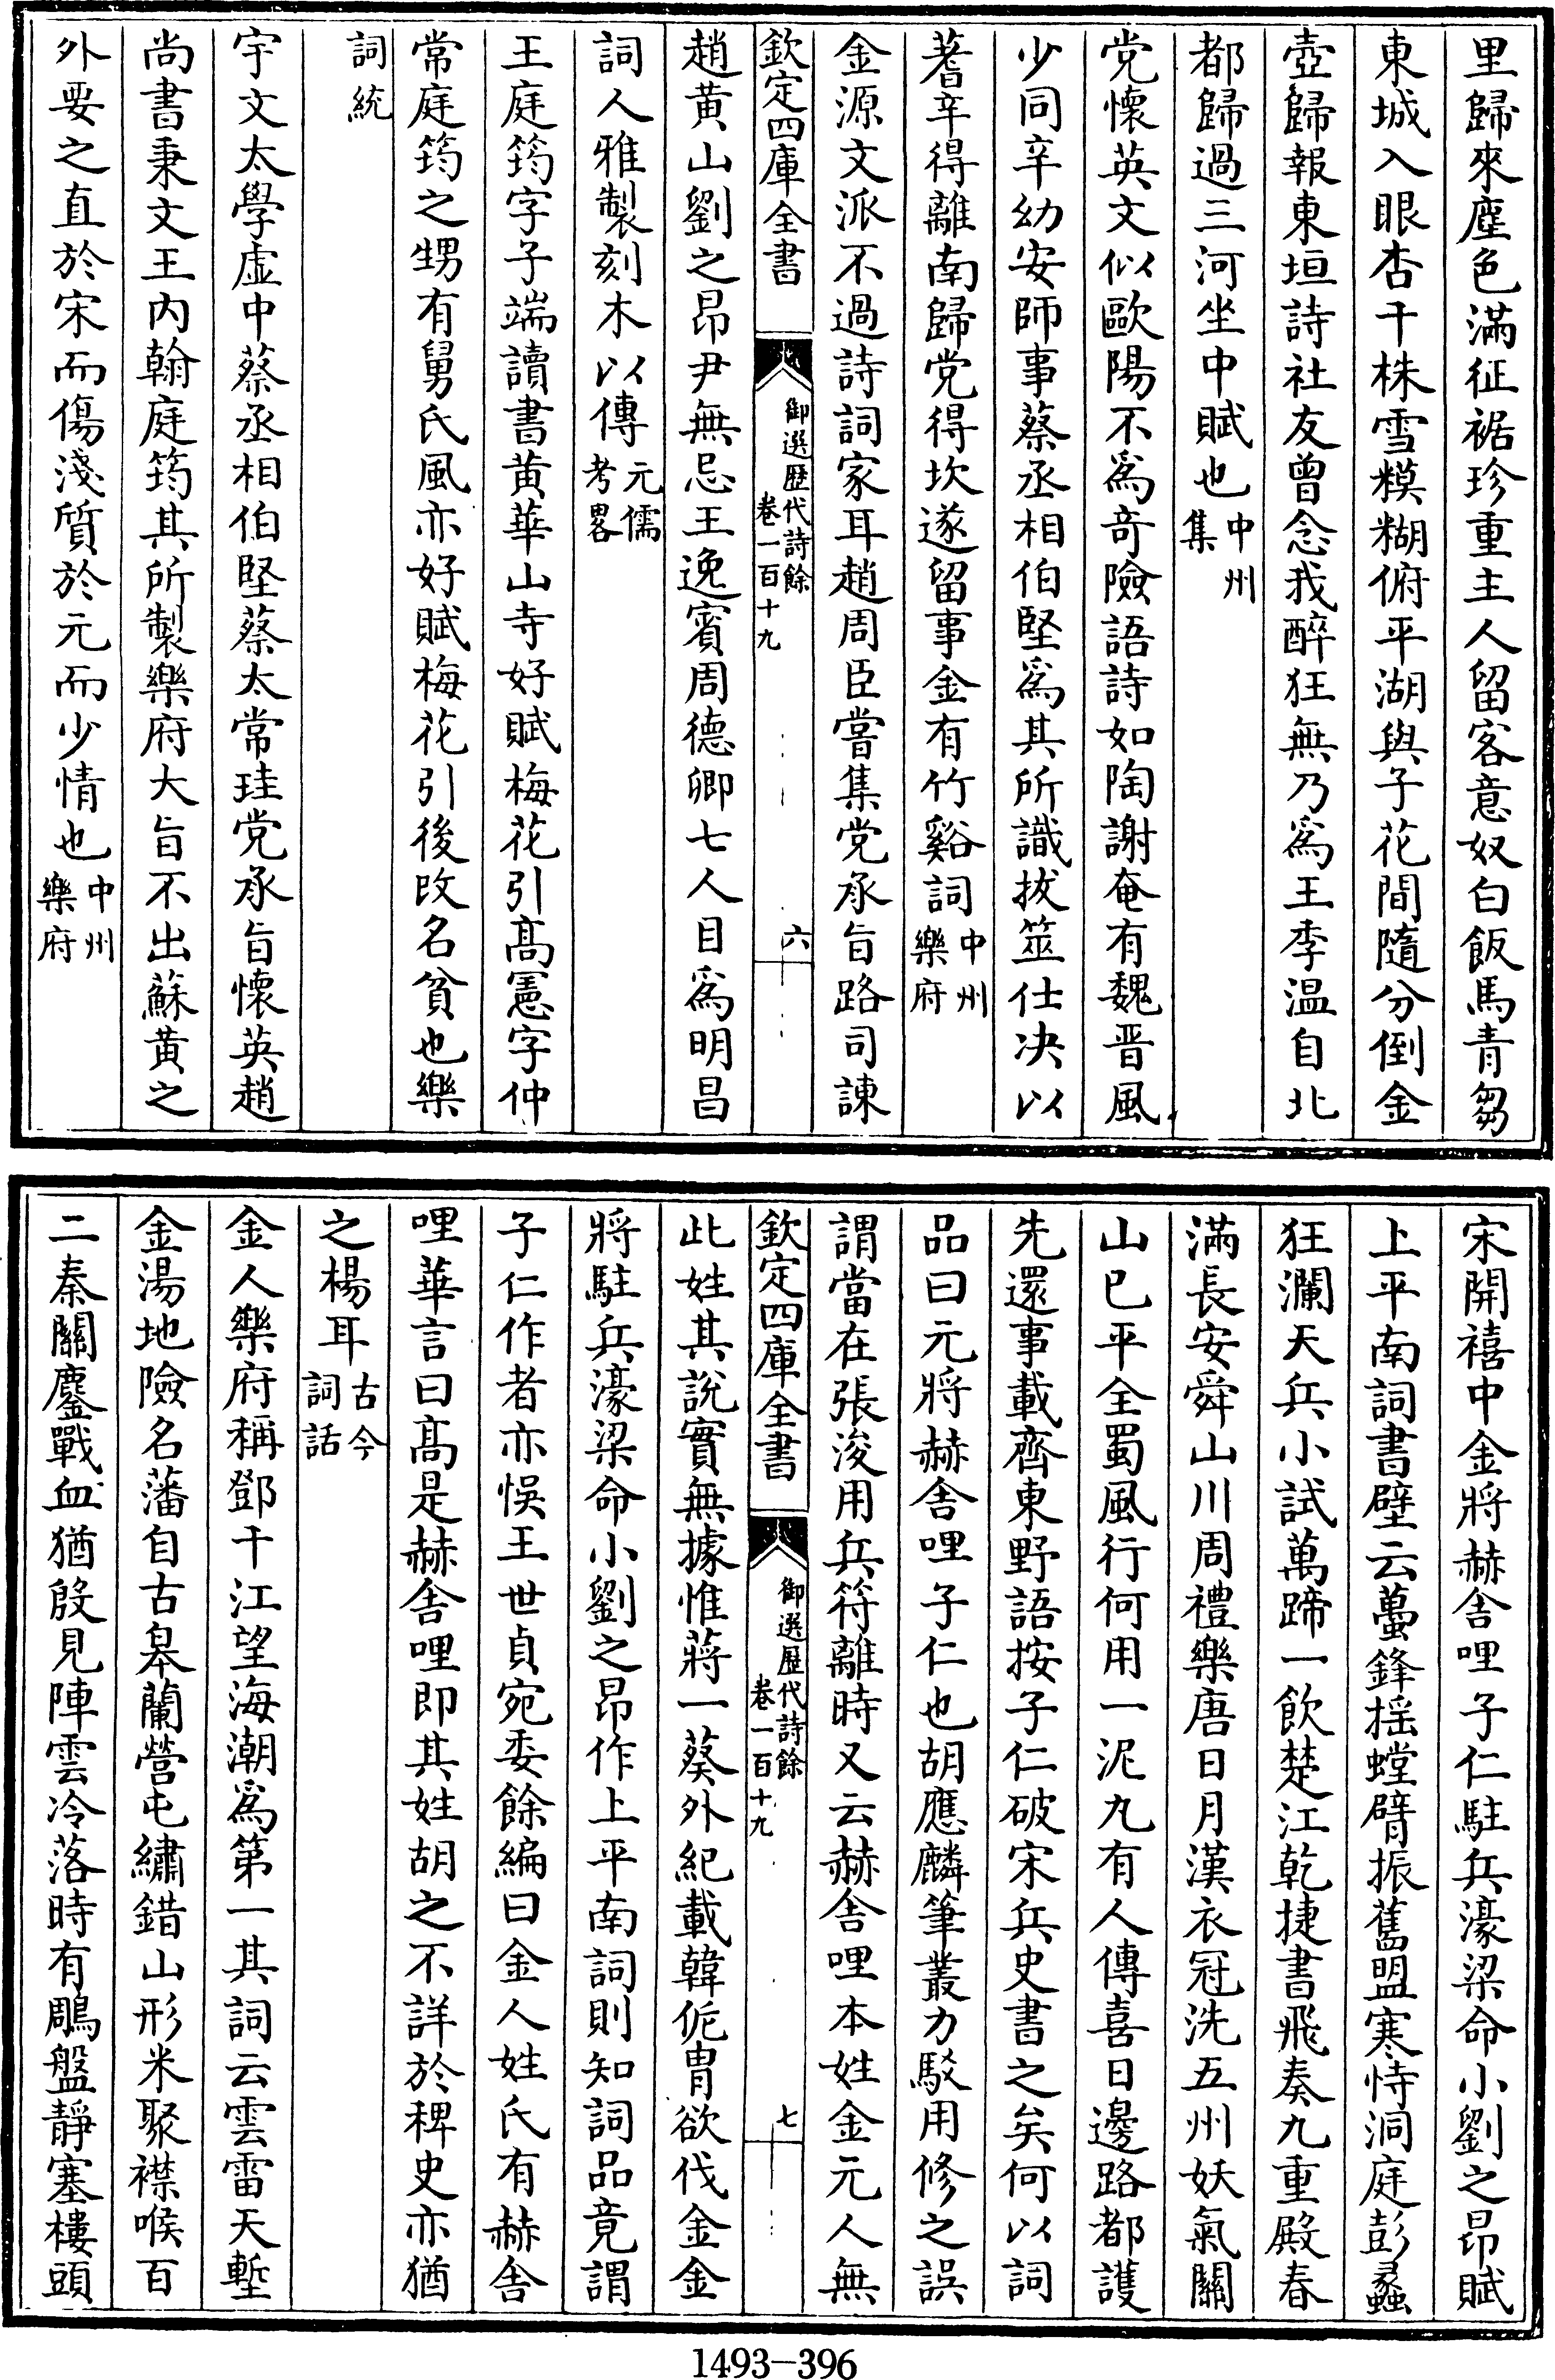 里歸來塵色滿征裾珍重主人留客意奴白飯馬青芻
東城入眼杏千株雪糢糊俯平湖與子花間隨分倒金
壺歸報東垣詩社友曾念我醉狂無乃爲王季温自北
都歸過三河坐中賦也中州集
党懷英文似歐陽不爲奇險語詩如陶謝奄有魏晋風
少同辛幼安師事蔡丞相伯堅爲其所識拔筮仕决以
蓍辛得離南歸党得坎遂留事金有竹谿詞中州樂府
金源文派不過詩詞家耳趙周臣嘗集党承旨路司諫
欽定四庫全書 御選歷代詩餘 卷一百十九 六
趙黄山劉之昂尹無忌王逸賓周德卿七人目爲明昌
詞人雅製刻木以傳元儒考畧
王庭筠字子端讀書黄華山寺好賦梅花引髙憲字仲
常庭筠之甥有舅氏風亦好賦梅花引後改名貧也樂
詞統
宇文太學虚中蔡丞相伯堅蔡太常珪党承旨懷英趙
尚書秉文王内翰庭筠其所製樂府大旨不出蘇黄之
外要之直於宋而傷淺質於元而少情也中州樂府
宋開禧中金將赫舎哩子仁駐兵濠梁命小劉之昂賦
上平南詞書壁云蠆鋒揺螳臂振舊盟寒恃洞庭彭蠡
狂瀾天兵小試萬蹄一飲楚江乾捷書飛奏九重殿春
滿長安舜山川周禮樂唐日月漢衣冠洗五州妖氣關
山已平全蜀風行何用一泥九有人傳喜日邊路都護
先還事載齊東野語按子仁破宋兵史書之矣何以詞
品曰元將赫舎哩子仁也胡應麟筆叢力駁用修之誤
謂當在張浚用兵符離時又云赫舎哩本姓金元人無
欽定四庫全書 御選歷代詩餘 卷一百十九 七
此姓其說實無據惟蔣一葵外紀載韓侂胄欲伐金金
將駐兵濠梁命小劉之昂作上平南詞則知詞品竟謂
子仁作者亦悞王世貞宛委餘編曰金人姓氏有赫舎
哩華言曰髙是赫舎哩即其姓胡之不詳於稗史亦猶
之楊耳古今詞話
金人樂府稱鄧千江望海潮爲第一其詞云雲雷天塹
金湯地險名藩自古皋蘭營屯繡錯山形米聚襟喉百
二秦關鏖戰血猶殷見陣雲冷落時有鵰盤靜塞樓頭
1493-396